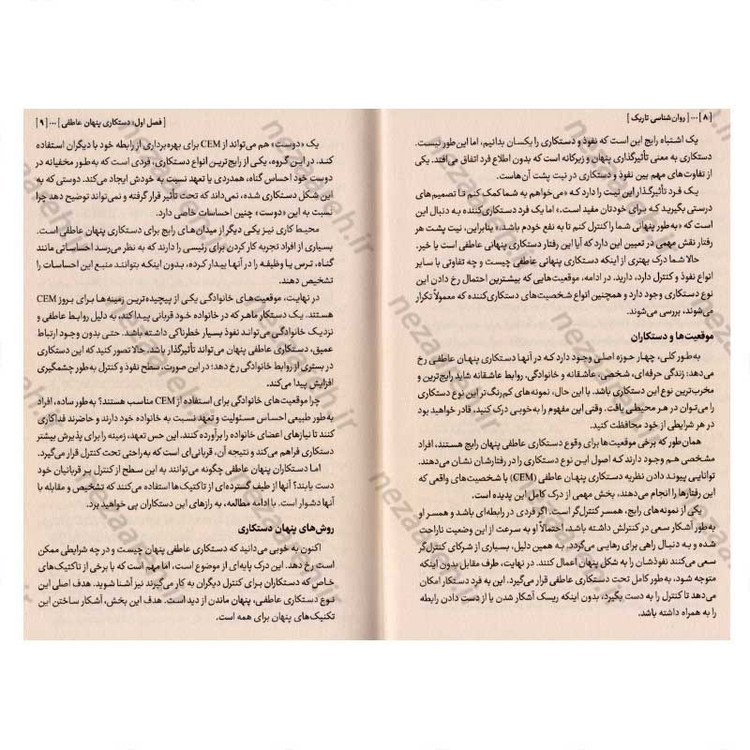 [۸] ... [ روان‌شناسی تاریک ]
یک اشتباه رایج این است که نفوذ و دستکاری را یکسان بدانیم، اما این‌طور نیست.
دستکاری به معنی تأثیرگذاری پنهان و زیرکانه است که بدون اطلاع فرد اتفاق می‌افتد. یکی
از تفاوت‌های مهم بین نفوذ و دستکاری در نیت پشت آن‌هاست.
یک فرد تأثیرگذار این نیت را دارد که «می‌خواهم به شما کمک کنم تا تصمیم‌های
درستی بگیرید که برای خودتان مفید است.» اما یک فرد دستکاری‌کننده به دنبال این
است که «به‌طور پنهانی شما را کنترل کنم تا به نفع خودم باشد.» بنابراین، نیت پشت هر
رفتار نقش مهمی در تعیین این دارد که آیا این رفتار دستکاری پنهانی عاطفی است یا خیر.
حالا شما درک بهتری از اینکه دستکاری پنهان عاطفی چیست و چه تفاوتی با سایر
انواع نفوذ و کنترل دارد، دارید. در ادامه، موقعیت‌هایی که بیشترین احتمال رخ دادن این
نوع دستکاری وجود دارد و همچنین انواع شخصیت‌های دستکاری‌کننده که معمولاً تکرار
می‌شوند، بررسی می‌شوند.
موقعیت‌ها و دستکاران
به‌طور کلی، چهار حوزه اصلی وجود دارد که در آنها دستکاری پنهان عاطفی رخ
می‌دهد: زندگی حرفه‌ای، شخصی، عاشقانه و خانوادگی. روابط عاشقانه شاید رایج‌ترین و
مخرب‌ترین نوع این دستکاری باشد. با این حال، نمونه‌های کم‌رنگ‌تر این نوع دستکاری
را می‌توان در هر محیطی یافت. وقتی این مفهوم را به‌خوبی درک کنید، قادر خواهید بود
در هر شرایطی از خود محافظت کنید.
همان‌طور که برخی موقعیت‌ها برای وقوع دستکاری عاطفی پنهان رایج هستند، افراد
مشخصی هم وجود دارند که اصول این نوع دستکاری را در رفتارشان نشان می‌دهند.
توانایی پیوند دادن نظریه دستکاری پنهان عاطفی (CEM) با شخصیت‌های واقعی که
این رفتارها را انجام می‌دهند، بخش مهمی از درک کامل این پدیده است.
یکی از نمونه‌های رایج، همسر کنترل‌گر است. اگر فردی در رابطه‌ای باشد و همسر او
به‌طور آشکار سعی در کنترلش داشته باشد، احتمالاً او به سرعت از این وضعیت ناراحت
شده و به دنبال راهی برای رهایی می‌گردد. به همین دلیل، بسیاری از شرکای کنترل‌گر
سعی می‌کنند نفوذشان را به شکل پنهان اعمال کنند. در نهایت، طرف مقابل بدون اینکه
متوجه شود، به‌طور کامل تحت دستکاری عاطفی قرار می‌گیرد. این به فرد دستکار امکان
می‌دهد تا کنترل را به دست بگیرد، بدون اینکه ریسک آشکار شدن یا از دست دادن رابطه
را به همراه داشته باشد.
[ فصل اول: دستکاری پنهان عاطفی ] ... [۹]
یک «دوست» هم می‌تواند از CEM برای بهره‌برداری از رابطه خود با دیگران استفاده
کند. در این گروه، یکی از رایج‌ترین انواع دستکاری، فردی است که به‌طور مخفیانه در
دوست خود احساس گناه، همدردی یا تعهد نسبت به خودش ایجاد می‌کند. دوستی که به
این شکل دستکاری شده، نمی‌داند که تحت تأثیر قرار گرفته و نمی‌تواند توضیح دهد چرا
نسبت به این «دوست» چنین احساسات خاصی دارد.
محیط کاری نیز یکی دیگر از میدان‌های رایج برای دستکاری پنهان عاطفی است.
بسیاری از افراد تجربه کار کردن برای رئیسی را دارند که به نظر می‌رسد احساساتی مانند
گناه، ترس یا وظیفه را در آنها بیدار کرده، بدون اینکه بتوانند منبع این احساسات را
تشخیص دهند.
در نهایت، موقعیت‌های خانوادگی یکی از پیچیده‌ترین زمینه‌ها برای بروز CEM
هستند. یک دستکار ماهر که در خانواده خود قربانی پیدا کند، به دلیل روابط عاطفی و
نزدیک خانوادگی می‌تواند نفوذ بسیار خطرناکی داشته باشد. حتی بدون وجود ارتباط
عمیق، دستکاری عاطفی پنهان می‌تواند تأثیرگذار باشد، حالا تصور کنید که این دستکاری
در بستری از روابط خانوادگی رخ دهد؛ در این صورت، سطح نفوذ و کنترل به‌طور چشمگیری
افزایش پیدا می‌کند.
چرا موقعیت‌های خانوادگی برای استفاده از CEM مناسب هستند؟ به‌طور ساده، افراد
به‌طور طبیعی احساس مسئولیت و تعهد نسبت به خانواده خود دارند و حاضرند فداکاری
کنند تا نیازهای اعضای خانواده را برآورده کنند. این حس تعهد، زمینه را برای پذیرش بیشتر
دستکاری فراهم می‌کند و نتیجه آن، قربانی‌ای است که به‌راحتی تحت کنترل قرار می‌گیرد.
اما دستکاران پنهان عاطفی چگونه می‌توانند به این سطح از کنترل بر قربانیان خود
دست یابند؟ آنها از طیف گسترده‌ای از تاکتیک‌ها استفاده می‌کنند که تشخیص و مقابله با
آنها دشوار است. با ادامه مطالعه، به رازهای این دستکاران پی خواهید برد.
روش‌های پنهان دستکاری
اکنون به خوبی می‌دانید که دستکاری عاطفی پنهان چیست و در چه شرایطی ممکن
است رخ دهد. این درک پایه‌ای از موضوع است، اما مهم است که با برخی از تاکتیک‌های
خاص که دستکاران برای کنترل دیگران به کار می‌گیرند نیز آشنا شوید. هدف اصلی این
نوع دستکاری عاطفی، پنهان ماندن از دید است. هدف این بخش، آشکار ساختن این
تکنیک‌های پنهان برای همه است.
nezaafeh.ir